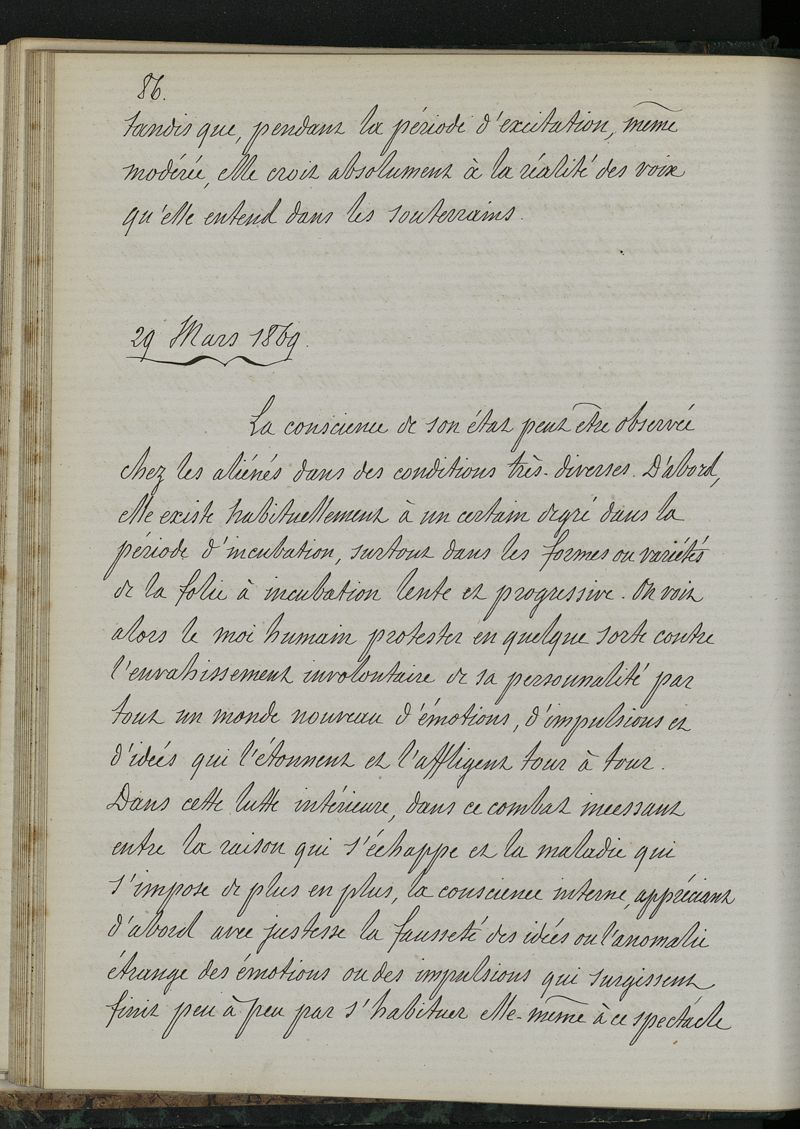 86.
tandis que, pendant la période d'excitation, même
modérée, elle croit absolument à la réalité des voix
qu'elle entend dans les souterrains.
29 Mars 1869.
La conscience de son état peut être observée
chez les aliénés dans des conditions très-diverses. D'abord,
elle existe habituellement à un certain degré dans la
période d'incubation, surtout dans les formes ou variétés
de la folie à incubation lente et progressive. On voit
alors le moi humain protester en quelque sorte contre
l'envahissement involontaire de sa personnalité par
tout un monde nouveau d'émotions, d'impulsions et
d'idées qui l'étonnent et l'affligent tour à tour.
Dans cette lutte intérieure, dans ce combat incessant
entre la raison qui s'échappe et la maladie qui
s'impose de plus en plus, la conscience interne, appréciant
d'abord avec justesse la fausseté des idées ou l'anomalie
étrange des émotions ou des impulsions qui surgissent,
finit peu à peu par s'habituer elle-même à ce spectacle